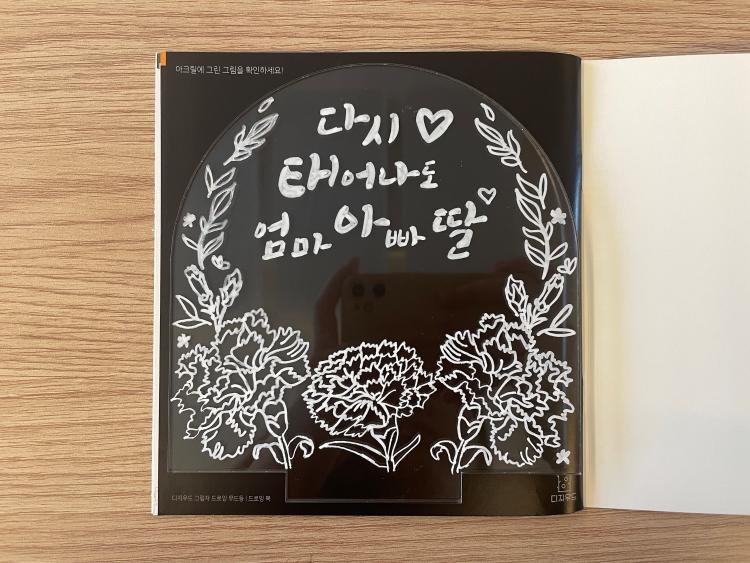 아크릴에 그린 그림을 확인하세요!
다시♡
태어나도
엄마아빠딸♡
디자우드 그림자 드로잉 무드등 | 드로잉 북
디자우드